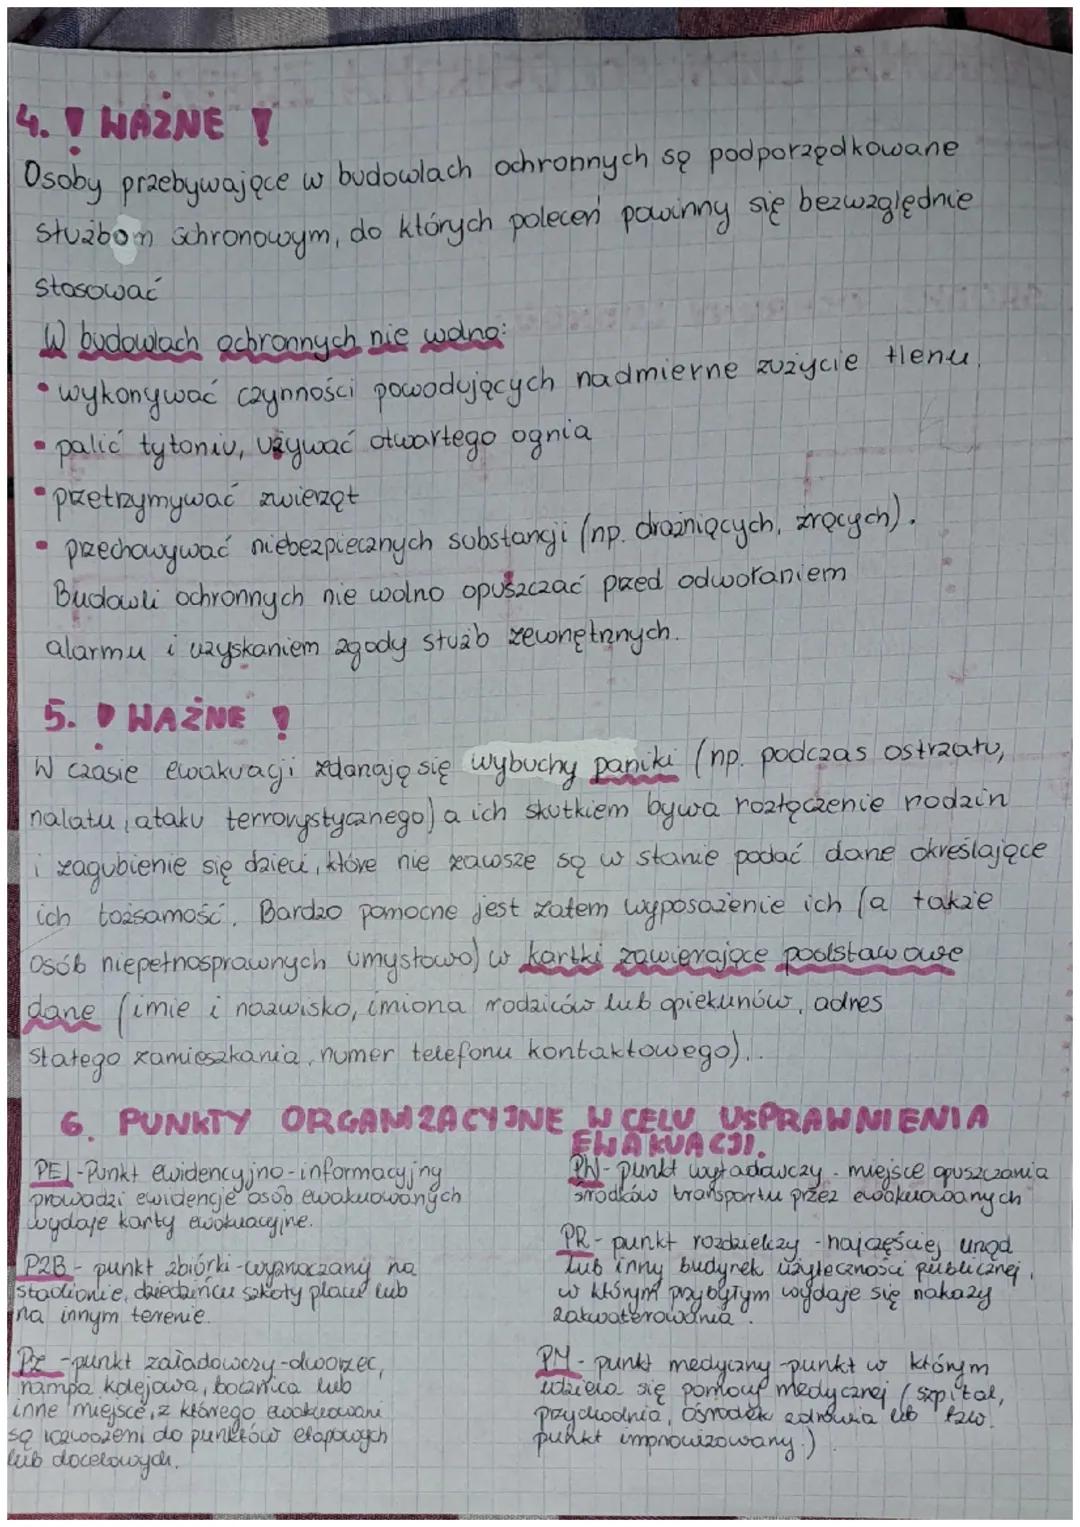 4. ! WAŻNE !
Osoby przebywające w budowlach ochronnych są podporządkowane
służbom schronowym, do których poleceń powinny się bezwzględnie
stosować
W budowlach ochronnych nie wolno:
• wykonywać czynności powodujących nadmierne zużycie tlenu,
• palić tytoniu, używać otwartego ognia
• przetrzymywać zwierząt
• przechowywać niebezpiecznych substancji (np. drażniących, żrących).
Budowli ochronnych nie wolno opuszczać przed odwołaniem
alarmu i uzyskaniem zgody służb zewnętrznych.
5. ! WAŻNE !
W czasie ewakuacji zdarzają się wybuchy paniki (np. podczas ostrzału,
nalatu, ataku terrorystycznego) a ich skutkiem bywa rozłączenie rodzin
i zagubienie się dzieci, które nie zawsze są w stanie podać dane określające
ich tożsamość. Bardzo pomocne jest zatem wyposażenie ich (a także
osób niepełnosprawnych umysłowo) w kartki zawierające podstawowe
dane (imie i nazwisko, imiona rodziców lub opiekunów, adres
stałego zamieszkania, numer telefonu kontaktowego)..
6. PUNKTY ORGANIZACYJNE W CELU USPRAWNIENIA
EWAKUACJI.
PEI - Punkt ewidencyjno-informacyjny
prowadzi ewidencje osób ewakuowanych
wydaje karty ewakuacyjne.
PZB - punkt zbiórki - wyznaczany na
stadionie, dziedzińcu szkoły placu lub
na innym terenie.
PZ - punkt załadowczy - dworzec,
rampa kolejowa, bocznica lub
inne miejsce, z którego ewakuowani
są rozwożeni do punktów etapowych
lub docelowych.
PW - punkt wyładawczy - miejsce opuszczania
środków transportu przez ewakuowanych
PR - punkt rozdzielczy - najczęściej urząd
lub inny budynek użyteczności publicznej,
w którym przybyłym wydaje się nakazy
zakwaterowania.
PM - punkt medyczny - punkt w którym
udziela się pomocy medycznej (szpital,
przychodnia, ośrodek zdrowia lub tzw.
punkt improwizowany.)